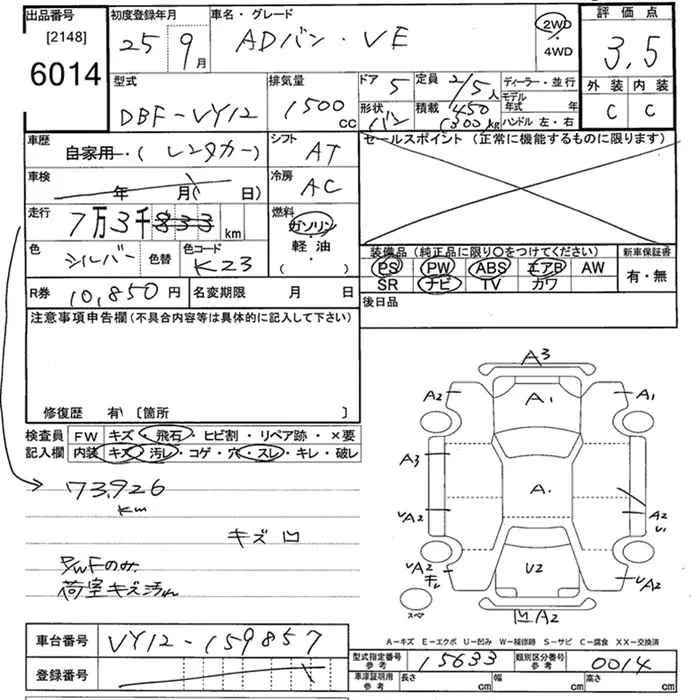 出品番号 初度登録年月 車名・グレード 評価点
[2148]
6014
25 9月 ADバン・VE 2WD ・ 4WD 3.5
型式 DBF-VY12
排気量 1500 cc
ドア 5 定員 2/5人 ディーラー・並行
形状 バン 積載 450 (300)kg モデル年式 年
ハンドル 左・右
外装 内装
C C
車歴 自家用・(レンタカー) シフト AT
セールスポイント (正常に機能するものに限ります)
車検 年 月( 日) 冷房 AC
走行 7万3千 km 燃料 ガソリン・軽油・( )
色 シルバー 色替 色コード K23
装備品(純正品に限り○をつけてください) 新車保証書
PS PW ABS エアB AW 有・無
SR ナビ TV カワ
R券 10,850円 名変期限 月 日 後日品
注意事項申告欄(不具合内容等は具体的に記入して下さい)
修復歴 有( 〔箇所 〕
検査員 FW キズ・飛石・ヒビ割・リペア跡・×要
記入欄 内装 キズ・汚レ・コゲ・穴・スレ・キレ・破レ
73,926
km
キズ凹
P/WFのみ
荷室キズ汚れ
A3
A2 A1 A1
A3 A
A2 A2
U1
A2 U2 A2
スペア
凹A2
A-キズ E-エクボ U-凹み W-補修跡 S-サビ C-腐食 XX-交換済
車台番号 VY12-159857
登録番号
型式指定番号 参考 15633 類別区分番号 参考 0014
車庫証明用 参考 長さ cm 幅 cm 高さ cm